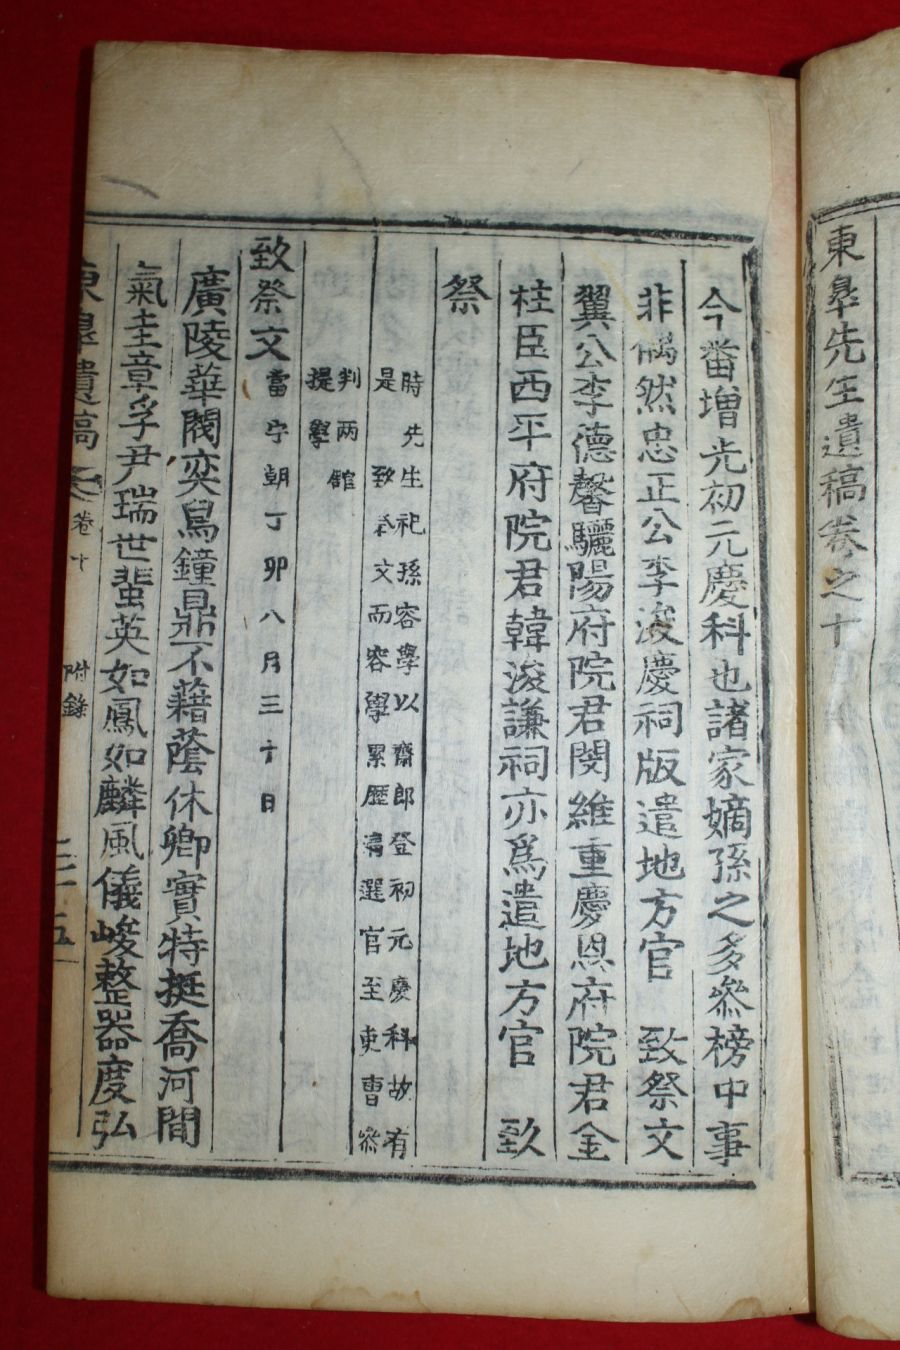 東皐先生遺稿卷之十
今番增光初元慶科也諸家嫡孫之多參榜中事
非偶然忠正公李浚慶祠版遣地方官 致祭文
翼公李德馨驪陽府院君閔維重慶恩府院君金
柱臣西平府院君韓浚謙祠亦爲遣地方官 致
祭
時先生祀孫容學以齋郎登初元慶科故有
是 致祭文而容學累歷淸選官至吏曹參
判兩館
提學
致祭文 當宁朝丁卯八月三十日
廣陵華閥奕舃鐘鼎不藉蔭休卿實特挺喬河間
氣圭章孚尹瑞世蜚英如鳳如麟風儀峻整器度弘
東皐遺稿 卷十 附錄 二十五